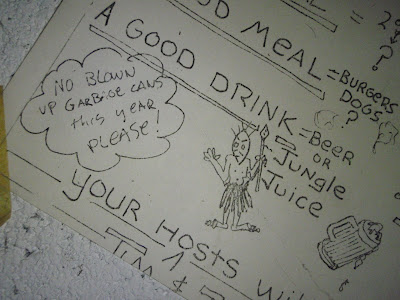 OOD MEAL = BURGERS
DOGS
?
= 2
?
A GOOD DRINK = BEER
OR
JUNGLE
JUICE
NO BLOWN
UP GARBAGE CANS
this YEAR
PLEASE!
YOUR HOSTS Wil